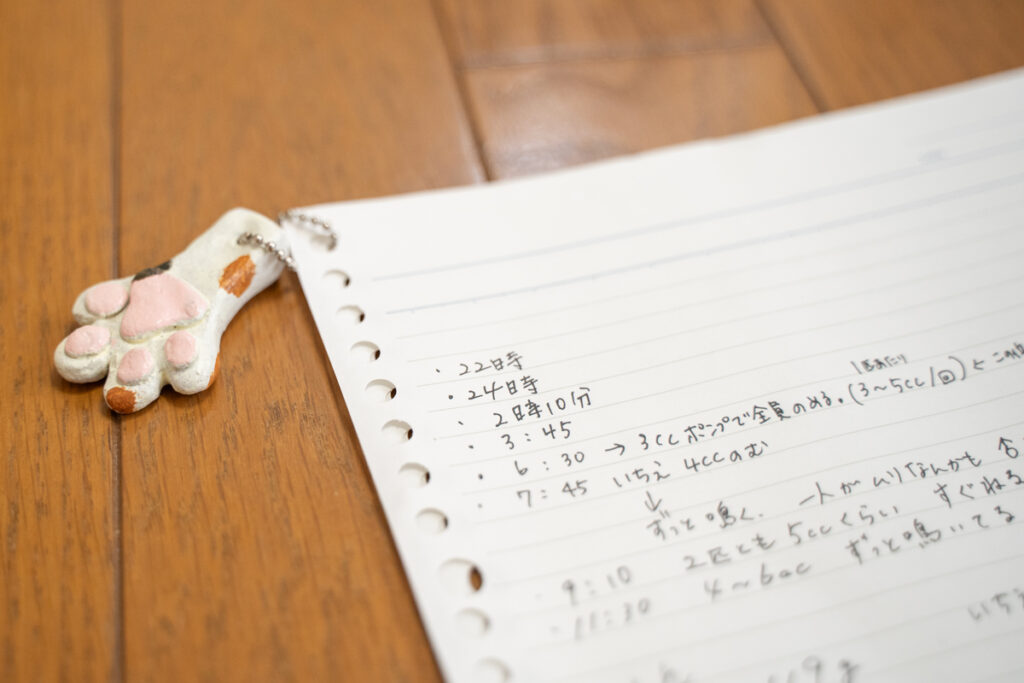 ・22時
・24時
・2時10分
・3:45
1匹あたり
・6:30 → 3ccポンプで全員のめる。(3〜5cc/回)と
・7:45 いちえ 4ccのむ
↓
ずっと鳴く.
・9:10 2匹とも 5ccくらい すぐねる
・11:30 4〜6cc ずっと鳴いてる
いちえ